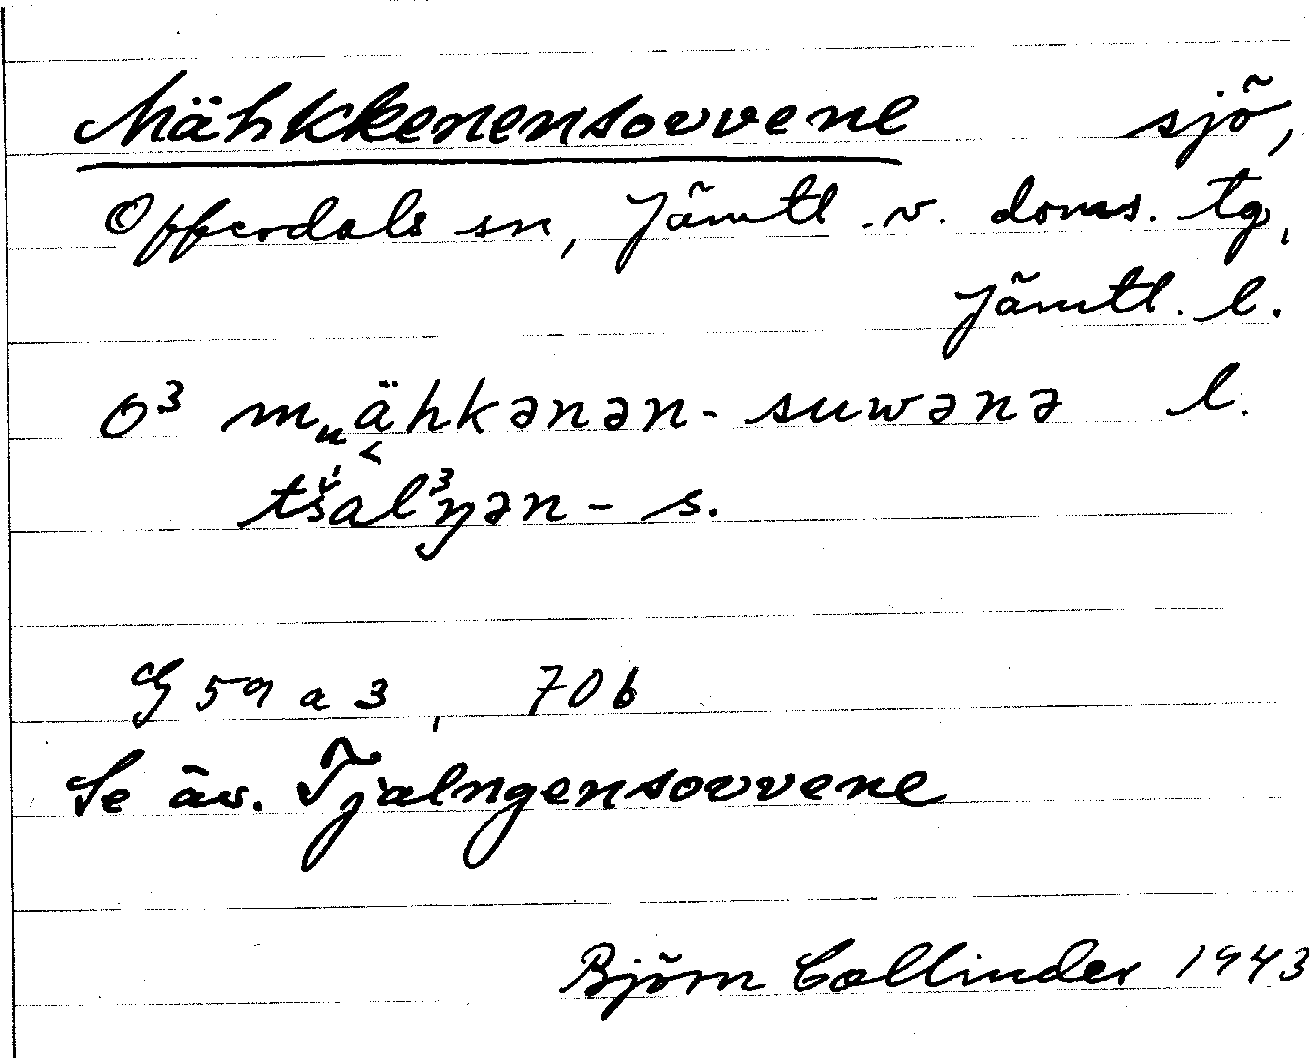 Mähkkenensovvene sjö,
Offerdals sn, Jämtl. v. doms. tg,
Jämtl. l.
O³ mᵤähkǝnǝn-suwǝnǝ l.
tšal³ŋǝn-s.
G 59 a 3, 706
Se äv. Tjalngensovvene
Björn Collinder 1943